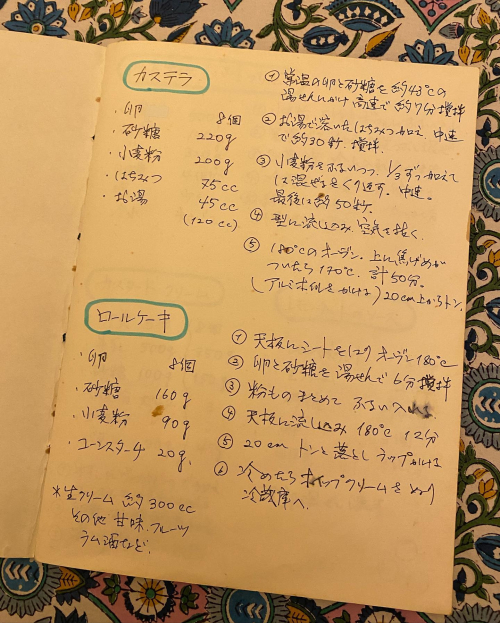 カステラ
・卵 8個
・砂糖 220g
・小麦粉 200g
・はちみつ 75cc
・お湯 45cc
(120cc)
① 常温の卵と砂糖を約43℃の
湯せんにかけ 高速で約7分撹拌
② お湯で溶いたはちみつ加え 中速
で約30秒 撹拌
③ 小麦粉をふるいつつ 1/3ずつ加えて
は混ぜるをくり返す。中速。
最後は約50秒。
④ 型に流し込み 空気を抜く。
⑤ 180℃のオーブン。上に焦げめが
ついたら 170℃. 計50分。
(アルミホイルをかける) 20cm上からトン。
ロールケーキ
・卵 8個
・砂糖 160g
・小麦粉 90g
・コーンスターチ 20g.
*生クリーム 約300cc
その他 甘味. フルーツ
ラム酒など.
① 天板にシートをはり オーブン180℃
② 卵と砂糖を湯せんで6分撹拌
③ 粉ものまとめて ふるい入れ
④ 天板に流し込み 180℃ 12分
⑤ 20cm トンと落とし ラップかける
⑥ 冷めたらホイップクリームをぬり
冷蔵庫へ.